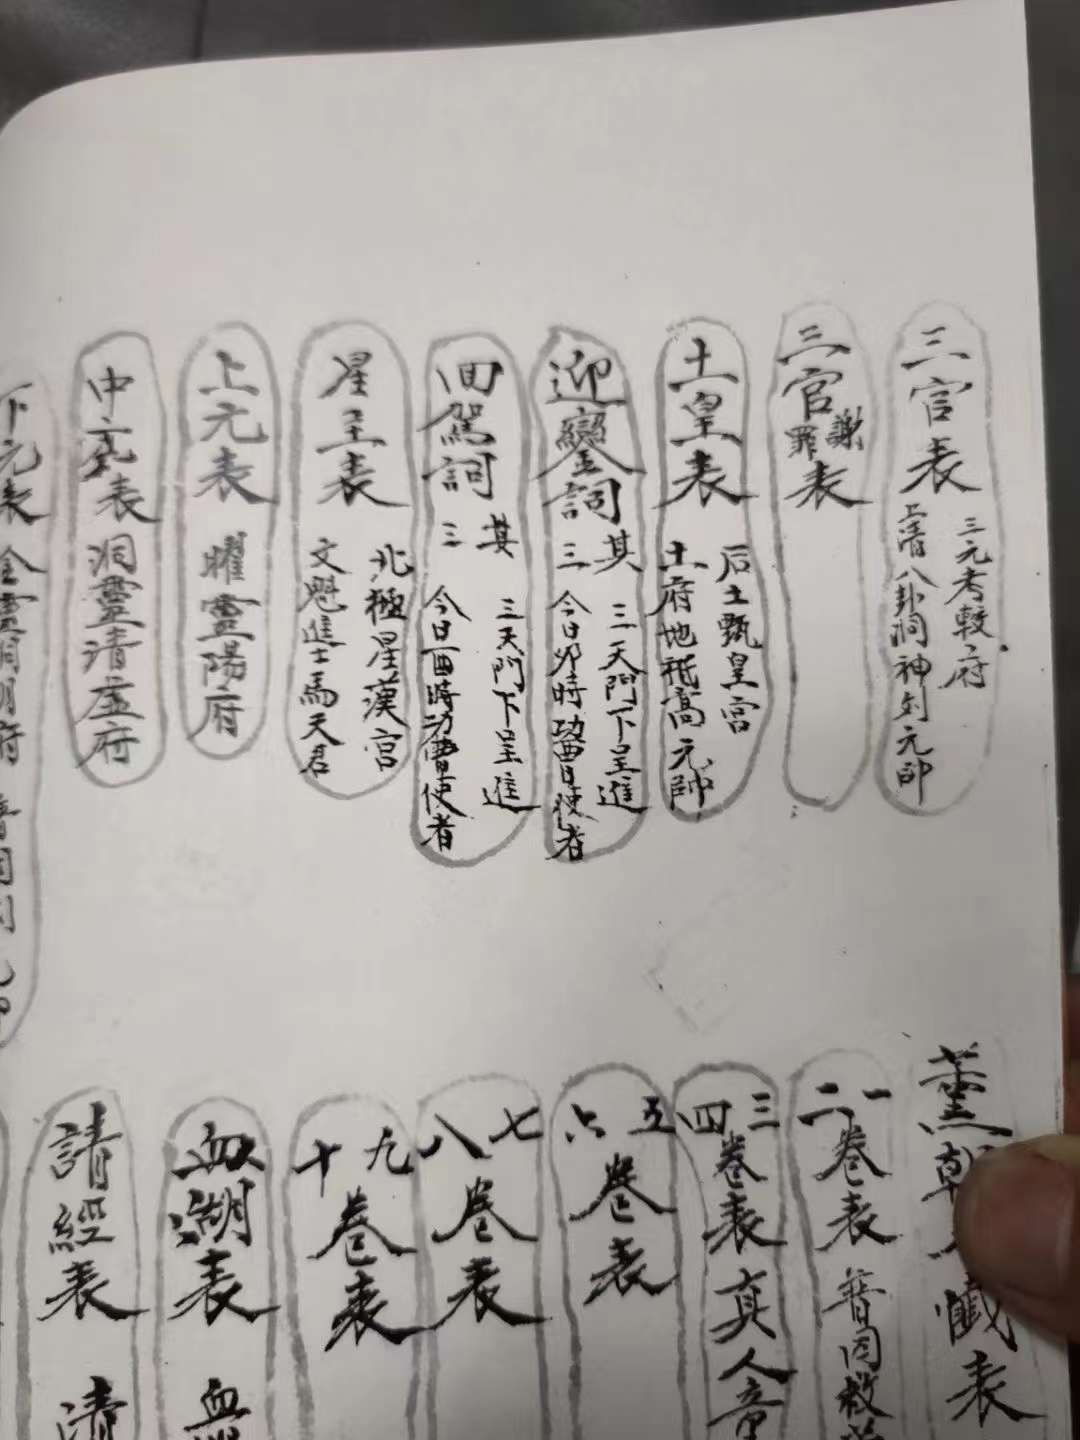 三官表
三元考較府
上清八卦洞神刘元帅
三官謝罪表
土皇表
后土甄皇宫
土府地祇高元帥
迎鑾詞
其三
三天門下呈進
今日夘時功曹使者
回駕詞
其三
三天門下呈進
今日酉時功曹使者
星主表
北極星漢宫
文魁進士馬天君
上元表
曜靈陽府
中元表
洞靈清虚府
下元表
金靈洞月府
薰朝
懺表
一二卷表
普因救
三四卷表
真人童
五六卷表
七八卷表
九十卷表
血湖表
血
請經表
清